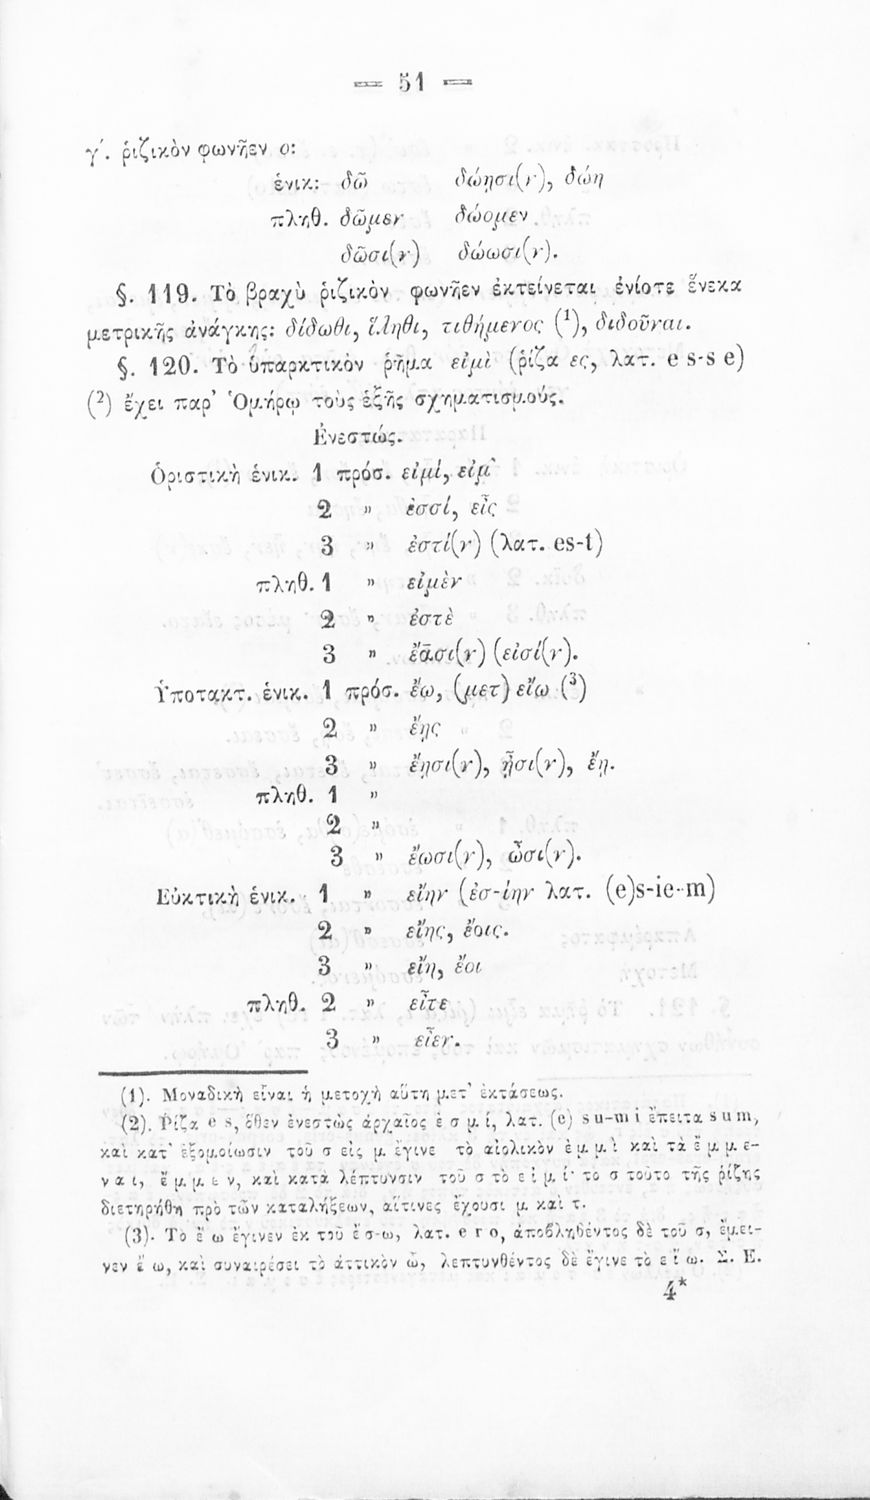 — 51 —
γ΄. ῥιζικὸν φωνῆεν ο:
ἑνικ: δῶ δώῃσι(ν), δώῃ
πληθ. δῶμεν δώομεν
δῶσι(ν) δώωσι(ν).
§. 119. Τὸ βραχὺ ῥιζικὸν φωνῆεν ἐκτείνεται ἐνίοτε ἕνεκα
μετρικῆς ἀνάγκης: δίδωθι, ἵληθι, τιθήμενος (1), διδοῦναι.
§. 120. Τὸ ὑπαρκτικὸν ῥῆμα εἰμὶ (ῥίζα ες, λατ. e s-s e)
(2) ἔχει παρ’ Ὁμήρῳ τοὺς ἑξῆς σχηματισμούς.
Ἐνεστώς.
Ὁριστικὴ ἑνικ. 1 πρόσ. εἰμί, εἰμ’
2 » ἐσσί, εἶς
3 » ἐστί(ν) (λατ. es-t)
πληθ. 1 » εἰμὲν
2 » ἐστὲ
3 » ἔᾱσι(ν) (εἰσί(ν).
Ὑποτακτ. ἑνικ. 1 πρόσ. ἔω, (μετ) είω (3)
2 » ἔῃς
3 » ἔῃσι(ν), ᾖσι(ν), ἔῃ.
πληθ. 1 »
2 »
3 » ἔωσι(ν), ὦσι(ν).
Εὐκτικὴ ἑνικ. 1 » εἴην (ἐσ-ίην λατ. (e)s-ie-m)
2 » εἴης, ἔοις.
3 » εἴη, ἔοι
πληθ. 2 » εἶτε
3 » εἶεν.
(1). Μοναδικὴ εἶναι ἡ μετοχὴ αὕτη μετ’ ἐκτάσεως.
(2). Ῥίζα e s, ὅθεν ἐνεστὼς ἀρχαῖος ἐ σ μ ί, λατ. (e) s u-m i ἔπειτα s u m,
καὶ κατ’ ἐξομοίωσιν τοῦ σ εἰς μ ἔγινε τὸ αἰολικὸν ἐ μ μ ὶ καὶ τὰ ἔ μ μ ε-
ν α ι, ἔ μ μ ε ν, καὶ κατὰ λέπτυνσιν τοῦ σ τὸ ε ἰ μ ί· το σ τοῦτο τῆς ῥίζης
διετηρήθη πρὸ τῶν καταλήξεων, αἵτινες ἔχουσι μ καὶ τ.
(3). Τὸ ἔ ω ἔγινεν ἐκ τοῦ ἔ σ-ω, λατ. e r o, ἀποβληθέντος δὲ τοῦ σ, ἔμει-
νεν ἔ ω, καὶ συναιρέσει τὸ ἀττικὸν ὦ, λεπτυνθέντος δὲ ἔγινε τὸ ε ἴ ω. Σ. Ε.
4*